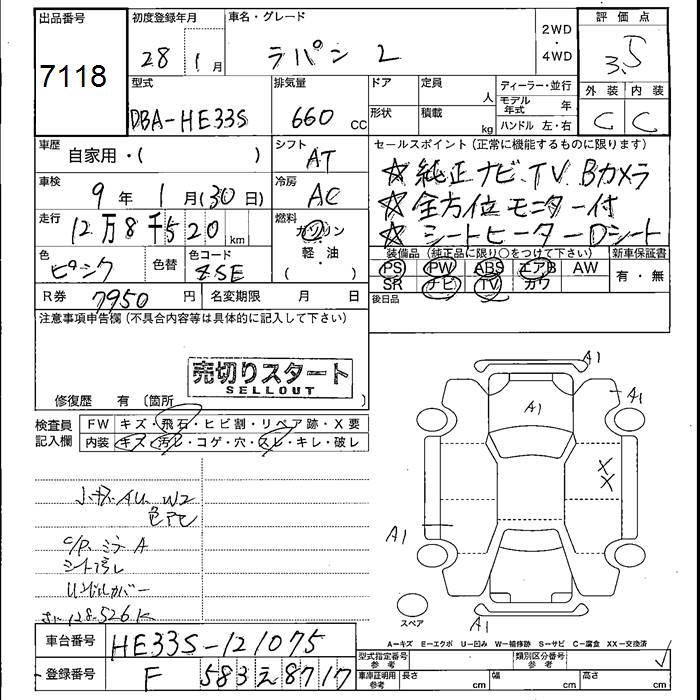 出品番号
7118
初度登録年月
28年 1月
車名・グレード
ラパン L
2WD
・
4WD
評価点
3.5
外装 内装
C C
型式
DBA-HE33S
排気量
660 cc
ドア
形状
定員 人
積載 kg
ディーラー・並行
モデル年式 年
ハンドル 左・右
車歴
自家用・( )
シフト
AT
セールスポイント (正常に機能するものに限ります)
☆純正ナビ、TV、Bカメラ
☆全方位モニター付
☆シートヒーターDシート
車検
9年 1月(30日)
冷房
AC
走行
12万8千520km
燃料
ガソリン
軽・油
( )
色
ピンク
色替
色コード
ZSE
装備品 (純正品に限り○をつけて下さい)
PS PW ABS エアB AW
SR ナビ TV カワ
新車保証書
有・無
後日品
R券 7950円
名変期限 月 日
注意事項申告欄 (不具合内容等は具体的に記入して下さい)
売切りスタート
SELLOUT
修復歴 有 〔箇所 〕
検査員記入欄
FW キズ・飛石・ヒビ割・リペア跡・X要
内装 キズ・汚レ・コゲ・穴・スレ・キレ・破レ
W2
A
A1
A1
A1
XX
A1
A1
スペア
A-キズ E-エクボ U-凹み W-補修跡 S-サビ C-腐食 XX-交換済
車台番号 HE33S-121075
登録番号 F 583 え 8717
型式指定番号 参考
類別区分番号 参考
車庫証明用 参考 長さ cm 幅 cm 高さ cm